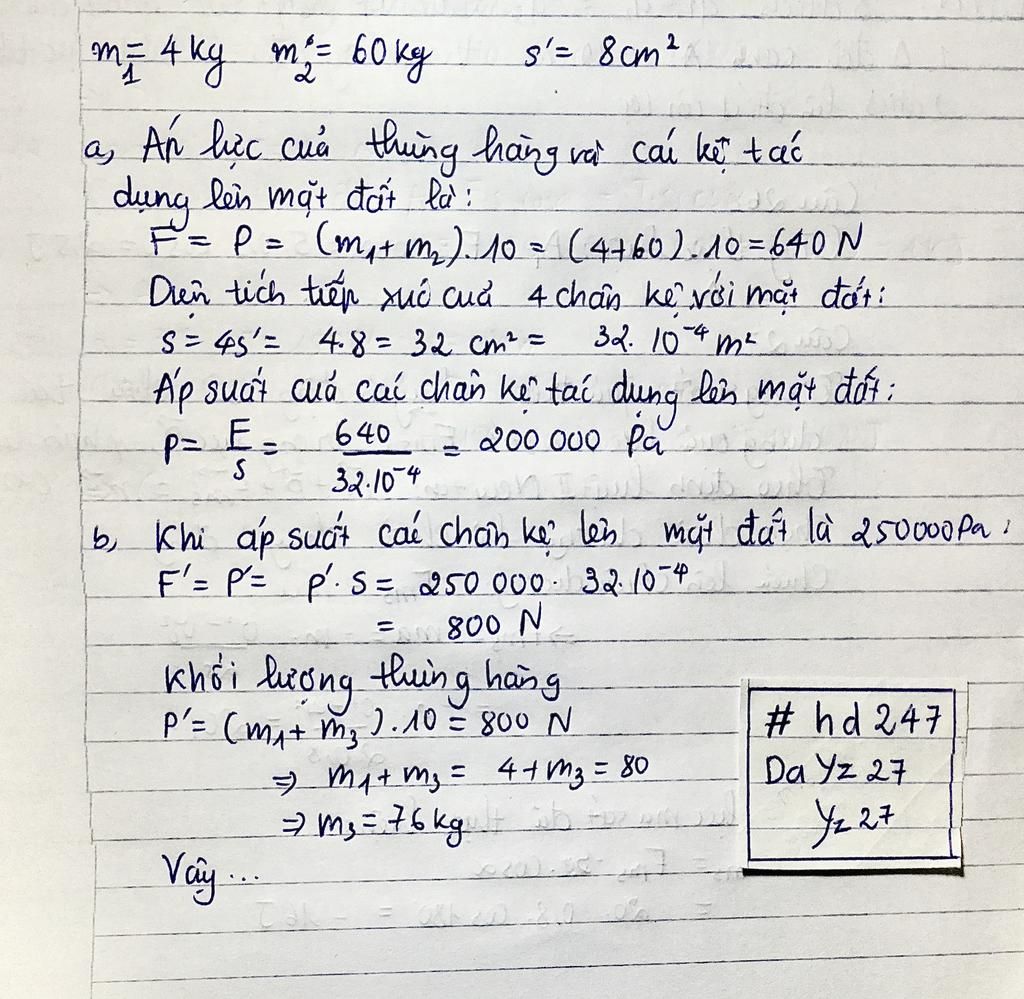 m₁ = 4 kg m₂ = 60 kg s' = 8 cm²
a, Áp lực của thùng hàng và cái kệ tác
dụng lên mặt đất là:
F = P = (m₁ + m₂).10 = (4+60).10 = 640 N
Diện tích tiếp xúc của 4 chân kệ với mặt đất:
s = 4s' = 4.8 = 32 cm² = 32.10⁻⁴ m²
Áp suất của các chân kệ tác dụng lên mặt đất:
p = F/s = 640/32.10⁻⁴ = 200 000 Pa
b, Khi áp suất các chân kệ lên mặt đất là 250000Pa:
F' = P' = p'.s = 250 000. 32.10⁻⁴
= 800 N
Khối lượng thùng hàng
P' = (m₁ + m₃).10 = 800 N
⇒ m₁ + m₃ = 4 + m₃ = 80
⇒ m₃ = 76 kg
Vậy...
# hd 247
Da Yz 27
Yz 27